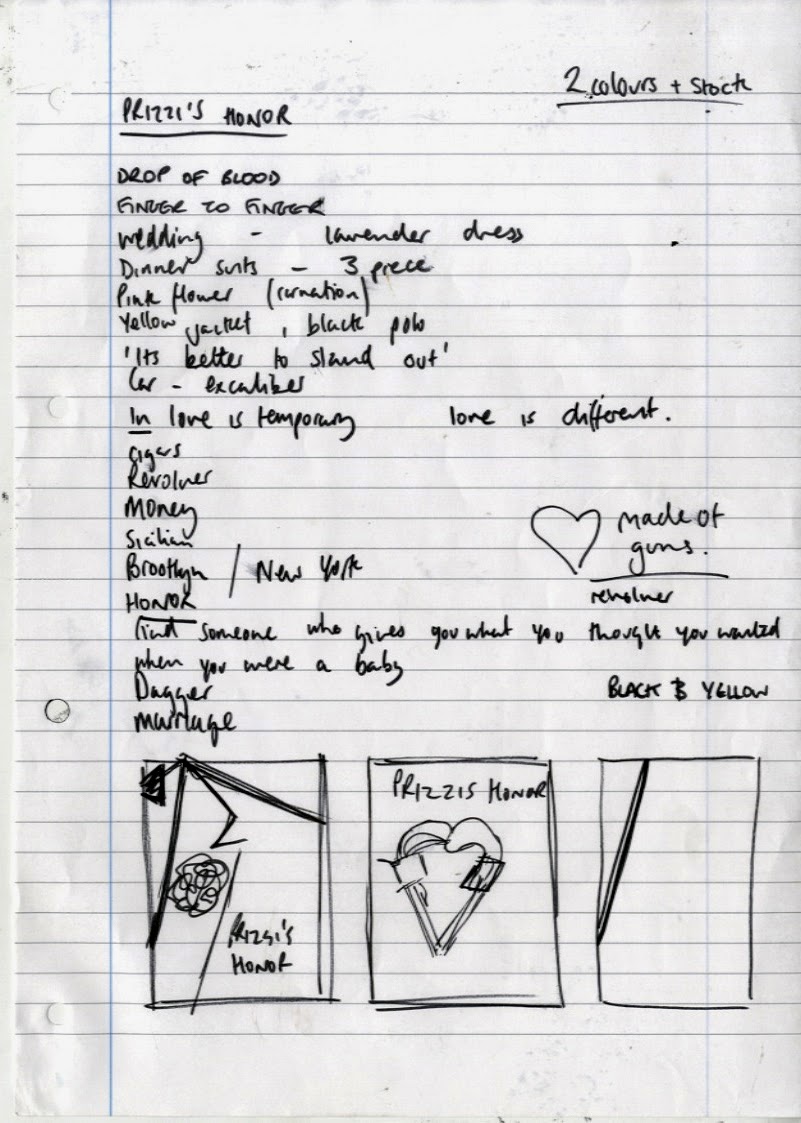 2 colours + stock
PRIZZI'S HONOR
DROP OF BLOOD
FINGER TO FINGER
wedding - lavender dress
Dinner suits - 3 piece
Pink flower (carnation)
Yellow jacket, black polo
'Its better to stand out'
Car - excaliber
In love is temporary love is different.
cigars
Revolver
Money
Sicilian
Brooklyn / New York
HONOR
made of
guns.
revolver
find someone who gives you what you thought you wanted
when you were a baby
Dagger
BLACK & YELLOW
marriage
PRIZZI'S
HONOR
PRIZZIS HONOR